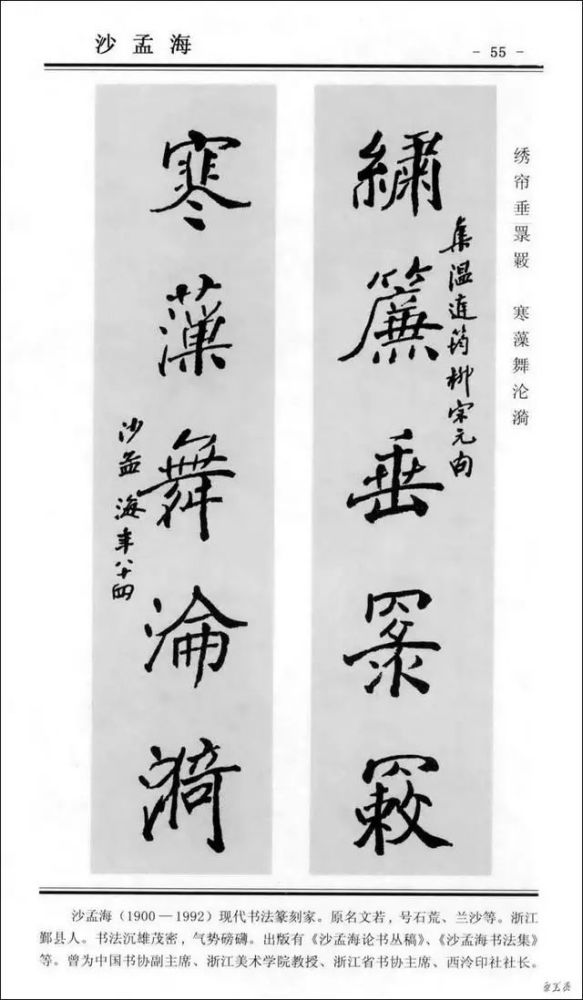 沙孟海
- 55 -
绣帘垂 寒藻舞沦漪
繡簾垂
集温庭筠柳宗元句
寒薻舞淪漪
沙孟海年八十四
沙孟海（1900—1992）现代书法篆刻家。原名文若，号石荒、兰沙等。浙江
鄞县人。书法沉雄茂密，气势磅礴。出版有《沙孟海论书丛稿》、《沙孟海书法集》
等。曾为中国书协副主席、浙江美术学院教授、浙江省书协主席、西泠印社社长。